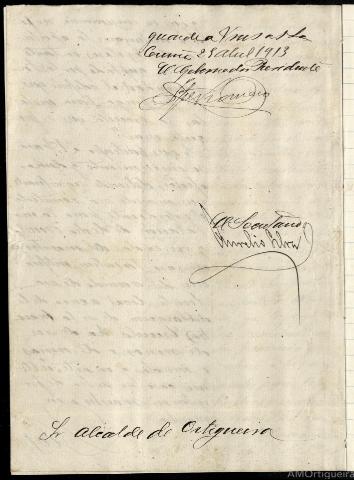 guarde a V. ms. as. La
Coruña 23 Abril 1913
El Gobernador Presidente
El Secretario
Aurelio
Sr Alcalde de Ortigueira
AMOrtigueira